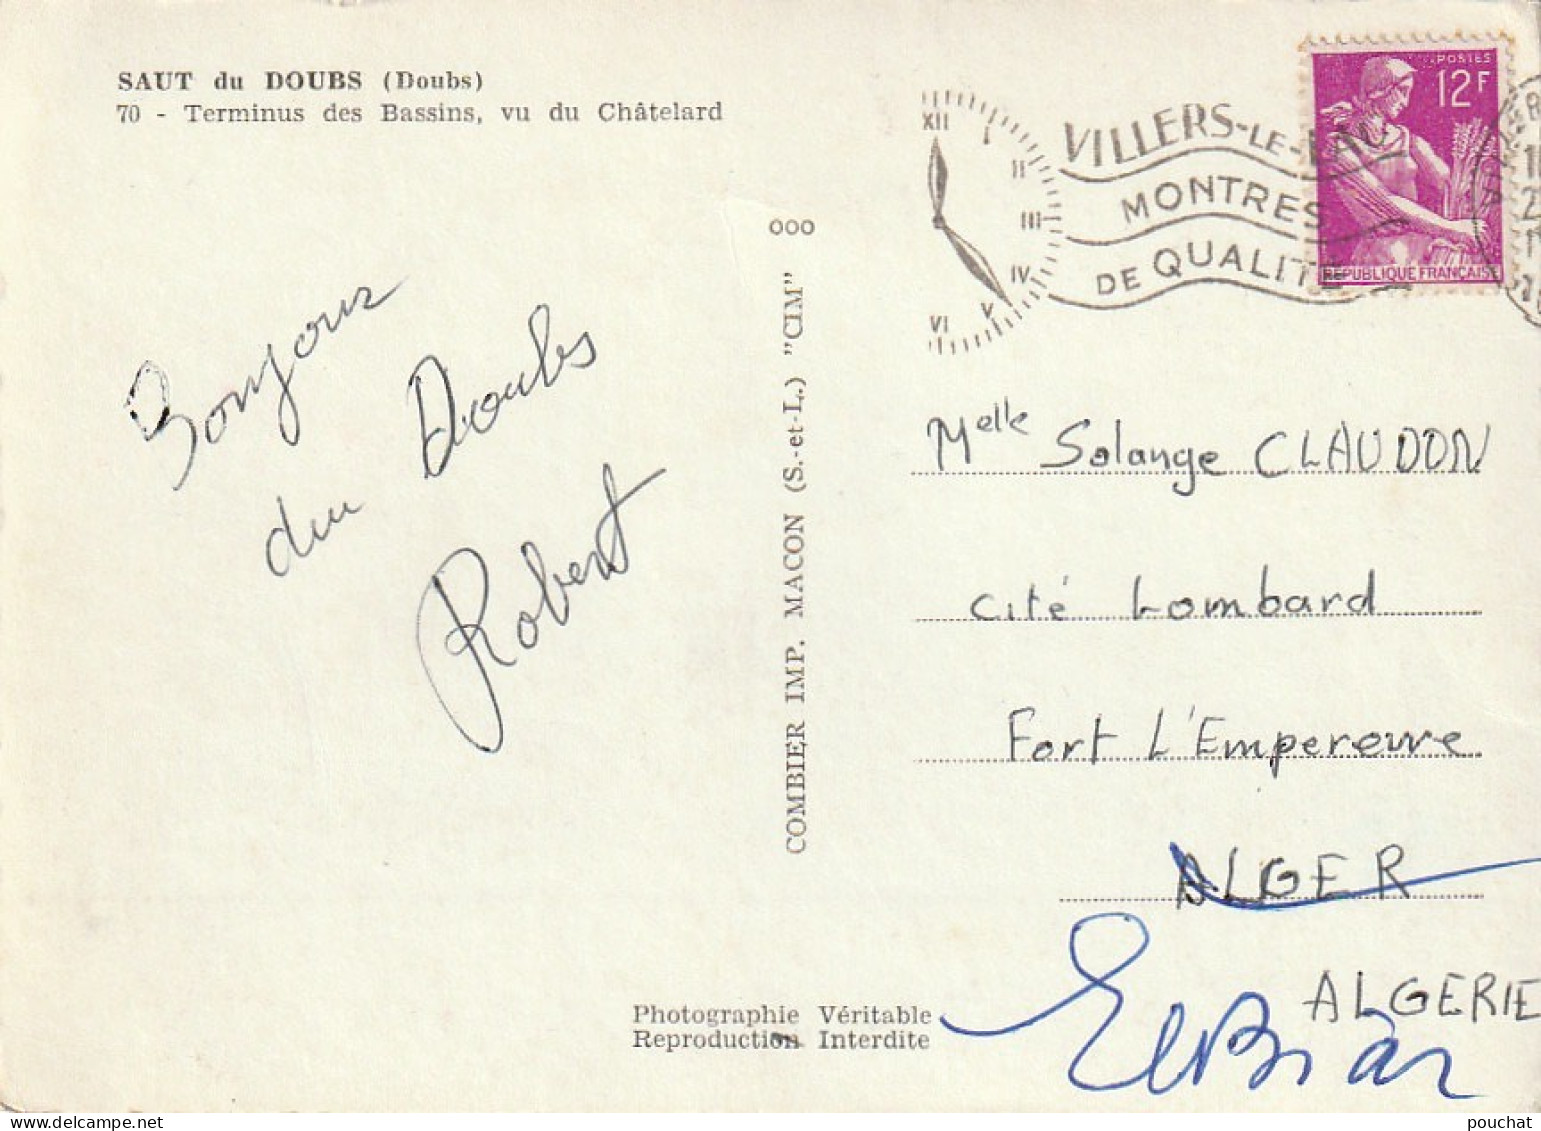 SAUT du DOUBS (Doubs)
70 - Terminus des Bassins, vu du Châtelard
Bonjour
du Doubs
Robert
COMBIER IMP. MACON (S.-et-L.) "CIM"
ooo
Photographie Véritable
Reproduction Interdite
XII
I
II
III
IV
V
VI
VILLERS-LE-LAC
MONTRES
DE QUALITÉ
POSTES
12F
REPUBLIQUE FRANÇAISE
Melle Solange CLAUDON
Cité Lombard
Fort L'Empereure
ALGER
ALGERIE
El Biar
pouchat